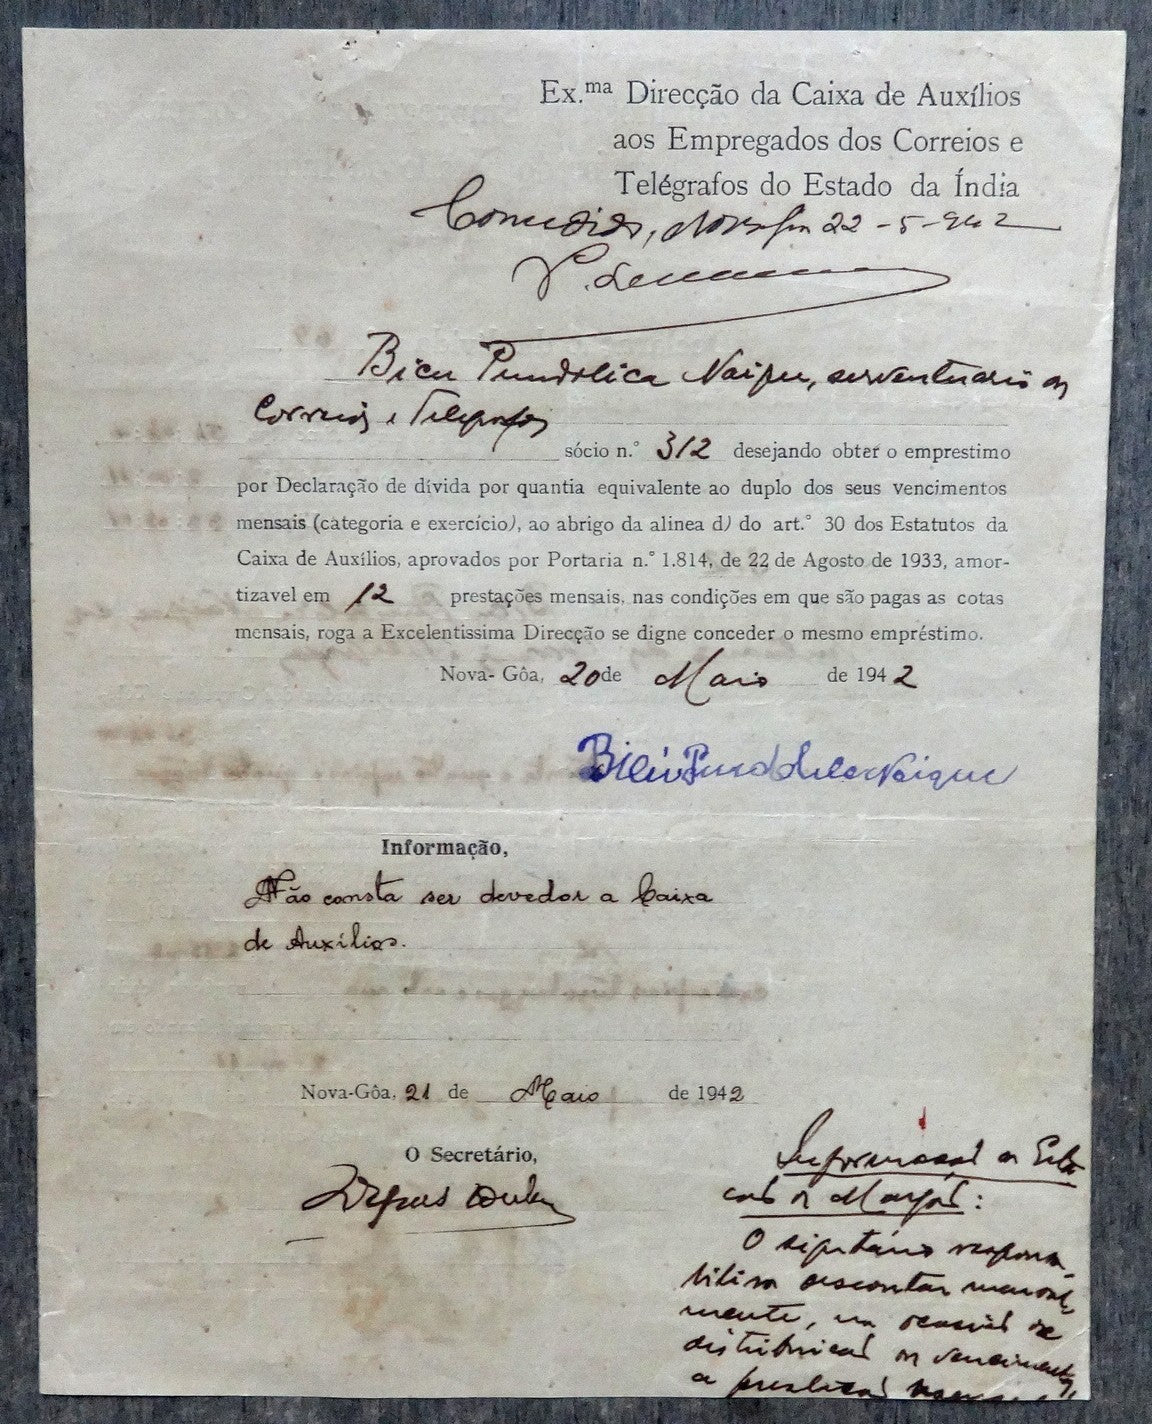 Ex.ma Direcção da Caixa de Auxílios
aos Empregados dos Correios e
Telégrafos do Estado da Índia
22-5-942
Bicu Pundolica Naique, serventuario
Correios e Telegrafos
sócio n.° 312 desejando obter o emprestimo
por Declaração de dívida por quantia equivalente ao duplo dos seus vencimentos
mensais (categoria e exercício), ao abrigo da alinea d) do art.° 30 dos Estatutos da
Caixa de Auxílios, aprovados por Portaria n.° 1.814, de 22 de Agosto de 1933, amor-
tizavel em 12 prestações mensais, nas condições em que são pagas as cotas
mensais, roga a Excelentissima Direcção se digne conceder o mesmo empréstimo.
Nova-Gôa, 20 de Maio de 1942
Naique
Informação,
Não consta ser devedor a Caixa
de Auxílios.
Nova-Gôa, 21 de Maio de 1942
O Secretário,
Informação
O
descontar
mente, de
distribuição
a